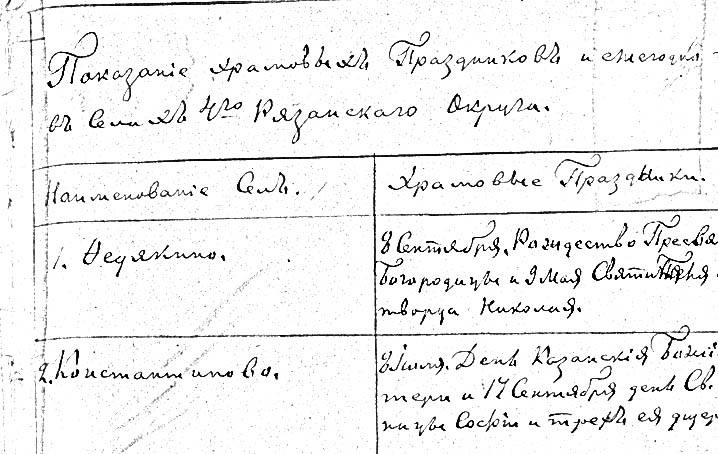 Показаніе храмовыхъ Праздниковъ и ежегодн
въ Селахъ 4го Рязанскаго Округа.
Наименованіе Селъ.
Храмовые Праздники.
1. Федякино.
8 Сентября. Рождество Пресвя
Богородицы и 9 Мая Святи
творца Николая.
2. Константиново.
8 Іюля. День Казанскія Божі
тери и 17 Сентября день Св.
ницы Софіи и трехъ ея дщер